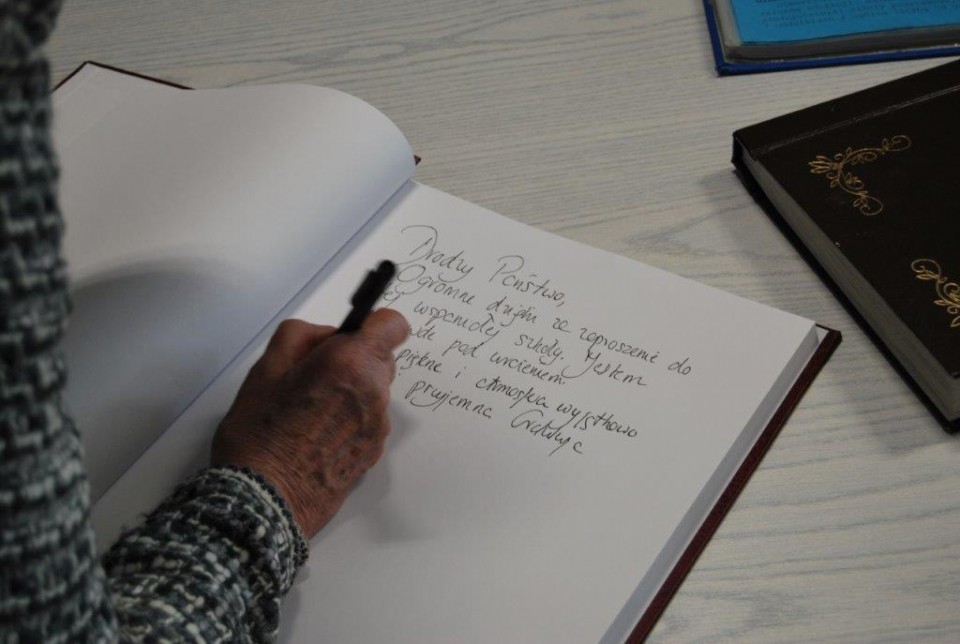 Drodzy Państwo,
Ogromne dzięki za zaproszenie do
ej wspaniałej szkoły. Jestem
wdę pod wrażeniem
pięknie i atmosfera wyjątkowo
przyjemna Gratuluję